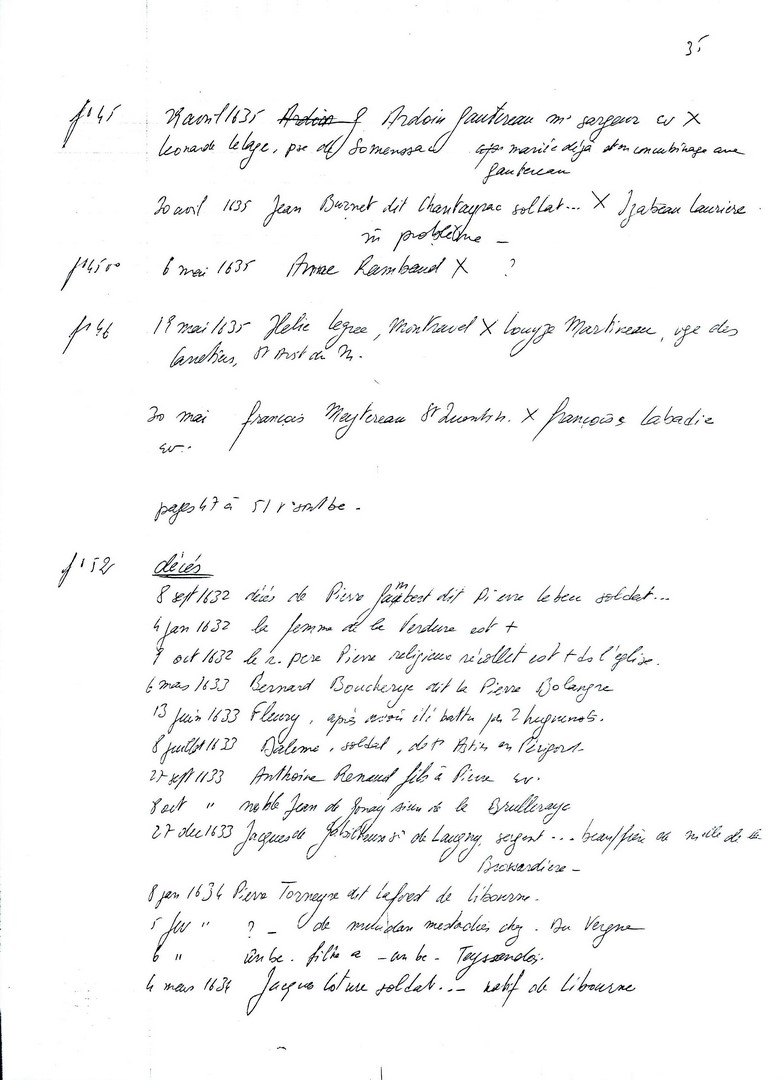 35
f° 45 29 avril 1635 Ardoin Gautereau mr sargeur X
leonarde lelage, pse de Somenssac mariée déjà et en concubinage avec
gautereau
30 avril 1635 Jean Burnet dit Chantayrac soldat... X Izabeau Lauriere
problème -
f° 45 v° 6 mai 1635 Annae Rambaud X ?
f° 46 19 mai 1635 Helie legree, Montravel X Louyze Martineau, vge des
30 mai françois Meytereau St Quentin. X françoise Labadie
sv.
pages 47 à 51 v° s'ont be -
f° 52 décés
8 sept 1632 décés de Pierre Jambert dit Pierre lebeu soldat...
4 jan 1632 la femme de la Verdure est +
9 oct 1632 le r. pere Pierre religieux récollet est + ds l'église.
6 mars 1633 Bernard Boucherye dit la Pierre Bolangre
13 juin 1633 Fleury, après avoir été battu par 2 huguenots.
8 juillet 1633 Daleme, soldat, de St Astier en Périgord
27 sept 1633 Anthoine Renaud fils à Pierre sv.
8 oct " noble Jean de Jonay sieur de la Brulleraye
27 dec 1633 Jacques de de Laugny, sergent ... beau/frère de mr de la
Brossardiere -
8 jan 1634 Pierre Torneyre dit Laforest de Libourne.
5 fev " ? - de mucidan chez. Du Vergne
6 " un be. fille a - un be - Teyssandes.
4 mars 1634 Jacques Coture soldat... natif de Libourne